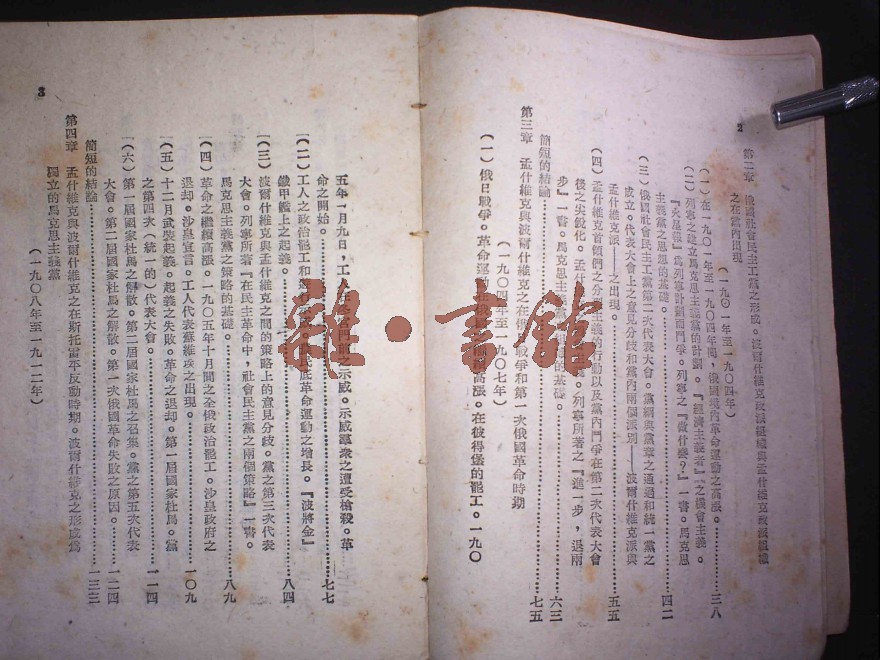 2
第二章　俄國社會民主工黨之形成。波爾什維克政治組織與孟什維克政治組織
之在黨內出現
（一九〇一年至一九〇四年）
（一）在一九〇一年至一九〇四年間，俄國境內革命運動之高漲。……三八
（二）列寧之建立馬克思主義黨的計劃。『經濟主義者』之機會主義。
『火星報』爲列寧計劃而鬥爭。列寧之『做什麼？』一書。馬克思
主義黨之思想的基礎。……四二
（三）俄國社會民主工黨第二次代表大會。黨綱與黨章之通過和統一黨之
成立。代表大會上之意見分歧和黨內兩個派別——波爾什維克派與
孟什維克派——之出現。……五五
（四）孟什維克首領們之分裂主義的行動以及黨內鬥爭在第二次代表大會
後之尖銳化。孟什維克之。列寧所著之『進一步，退兩
步』一書。馬克思主義黨的基礎。……六三
簡短的結論……七五
第三章　孟什維克與波爾什維克之在戰爭和第一次俄國革命時期
（一九〇四年至一九〇七年）
（一）俄日戰爭。革命運動在俄國高漲。在彼得堡的罷工。一九〇
3
五年一月九日，工人在冬宮門前之示威。示威羣衆之遭受槍殺。革
命之開始。……七七
（二）工人之政治罷工和革命運動之增長。『波將金』
鐵甲艦上之起義。……八四
（三）波爾什維克與孟什維克之間的策略上的意見分歧。黨之第三次代表
大會。列寧所著『在民主革命中，社會民主黨之兩個策略』一書。
馬克思主義黨之策略的基礎。……八九
（四）革命之繼續高漲。一九〇五年十月間之全俄政治罷工。沙皇政府之
退却。沙皇宣言。工人代表蘇維埃之出現。……一〇九
（五）十二月武裝起義。起義之失敗。革命之退却。第一屆國家杜馬。黨
之第四次（統一的）代表大會。……一一四
（六）第一屆國家杜馬之解散。第二屆國家杜馬之召集。黨之第五次代表
大會。第二屆國家杜馬之解散。第一次俄國革命失敗之原因。……一二四
簡短的結論……一三三
第四章　孟什維克與波爾什維克之在斯托雷平反動時期。波爾什維克之形成爲
獨立的馬克思主義黨
（一九〇八年至一九一二年）
龍·書館